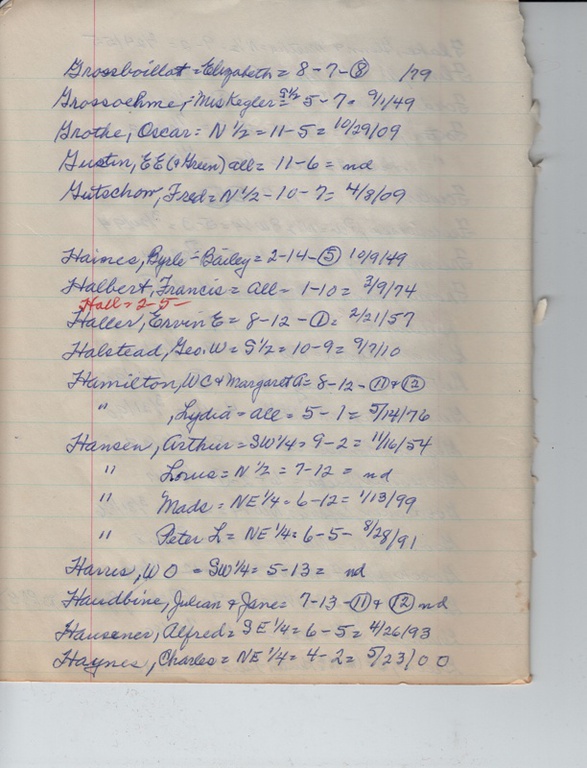 Grossboillot = Elizabeth = 8-7-⑧ /79
Grossoehme, = Mrs Kegler = S½ 5-7 = 9/1/49
Grothe, Oscar = N ½ = 11-5 = 10/29/09
Gustin, EE (+ Green) all = 11-6 = nd
Gutschow, Fred = N ½ - 10-7 = 4/8/09
Haines, Byrle = Bailey = 2-14-⑤ 10/9/49
Halbert, Francis = all = 1-10 = 3/9/74
Hall = 2-5
Haller, Ervin E = 8-12-① = 2/21/57
Halstead, Geo. W = S½ = 10-9 = 9/7/10
Hamilton, WC + Margaret A = 8-12-⑪ + ⑫
" , Lydia = all = 5-1 = 5/14/76
Hansen, Arthur = SW ¼ = 9-2 = 11/16/54
" Lorus = N ½ = 7-12 = nd
" Mads = NE ¼ = 6-12 = 1/13/99
" Peter L = NE ¼ = 6-5 - 8/28/91
Harris, W O = SW ¼ = 5-13 = nd
Haudbine, Julian + Jane = 7-13-⑪ + ⑫ nd
Hausener, Alfred = SE ¼ = 6-5 = 4/26/93
Haynes, Charles = NE ¼ = 4-2 = 5/23/00